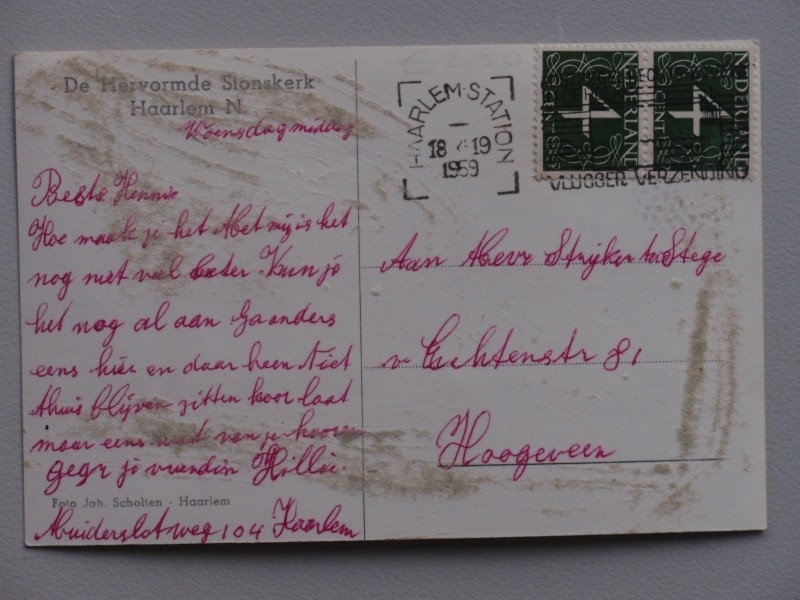 De Hervormde Sionskerk
Haarlem N.
Woensdagmiddag
Beste Hennie
Hoe maak je het Met mij is het
nog niet veel beter. Kun je
het nog al aan Ga anders
eens hier en daar heen Niet
thuis blijven zitten hoor laat
maar eens wat van je hooren
gegr je vriendin Hillie.
Foto Joh. Scholten - Haarlem
Muiderslotweg 104 Haarlem
HAARLEM-STATION
18 19
1959
NEDERLAND
4 CENT
NEDERLAND
4 CENT
VLUGGER VERZENDING
Aan Mevr Strijker ter Stege
v Echtenstr 81
Hoogeveen